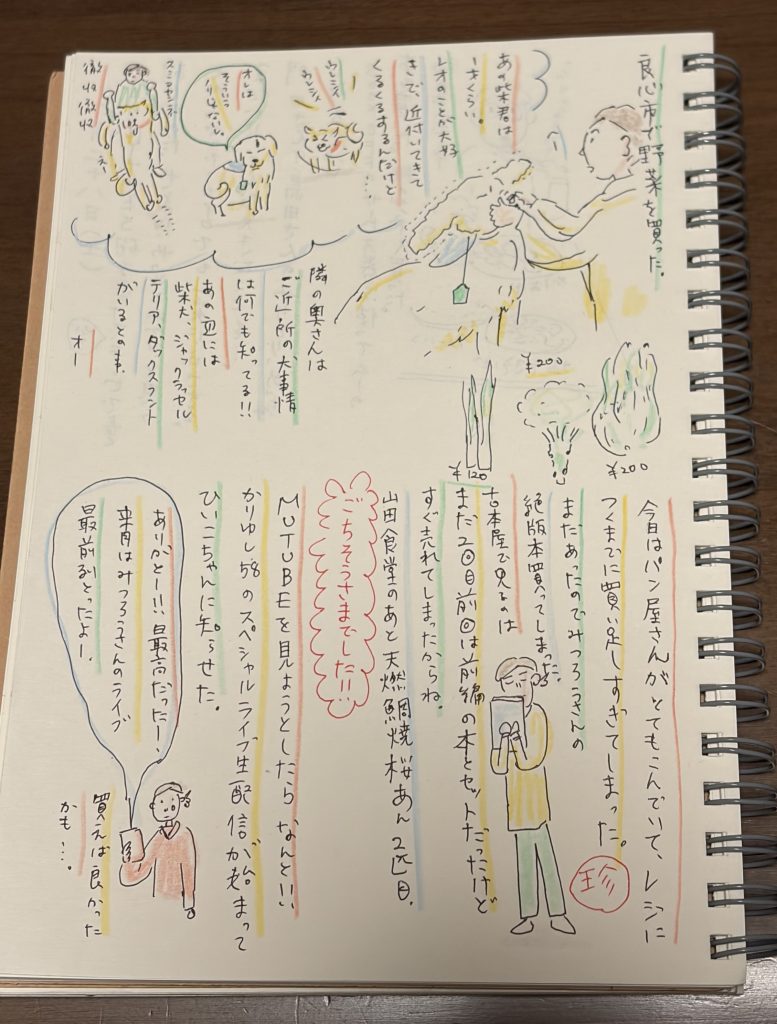 良心市で野菜を買った。
あの柴君は
1才くらい。
レオのことが大好
きで、近付いてきて
くるくるするんだけど
…。
ウレシイ
ウレシイ
オレは
そういう
ノリじゃない。
スミマセンネ
え〜
撤収撤収
隣の奥さんは
ご近所の犬事情
は何でも知ってる!!
あの辺には
柴犬、ジャックラッセル
テリア、ダックスフント
がいるとの事。
オー
¥200
¥200
¥120
今日はパン屋さんがとてもこんでいて、レジに
つくまでに買い足しすぎてしまった。
珍
まだあったのでみつろうさんの
絶版本買ってしまった。
古本屋で見るのは
まだ2回目前回は前編の本とセットだったけど
すぐ売れてしまったからね。
山田食堂のあと天燃鯛焼桜あん2匹目。
ごちそうさまでした!!
MUTUBEを見ようとしたらなんと!!
かりゆし58のスペシャルライブ生配信が始まって
ひいこちゃんに知らせた。
ありがとー!!!最高だったー!
来月はみつろうさんのライブ
最前列とったよー!
買えば良かった
かも…。